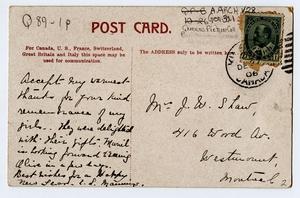 Q 89-1P
POST CARD.
For Canada, U. S., France, Switzerland,
Great Britain and Italy this space may be
used for communication.
The ADDRESS only to be written here
Accept my warmest
thanks for your kind
remembrance of my
girls. They were delighted
with their gifts. Muriel
is looking forward to seeing
Olive in a few days.
Best wishes for a Happy
New Year.
Mr. J. W. Shaw,
416 Wood Av.
Westmount,
Montreal
CANADA